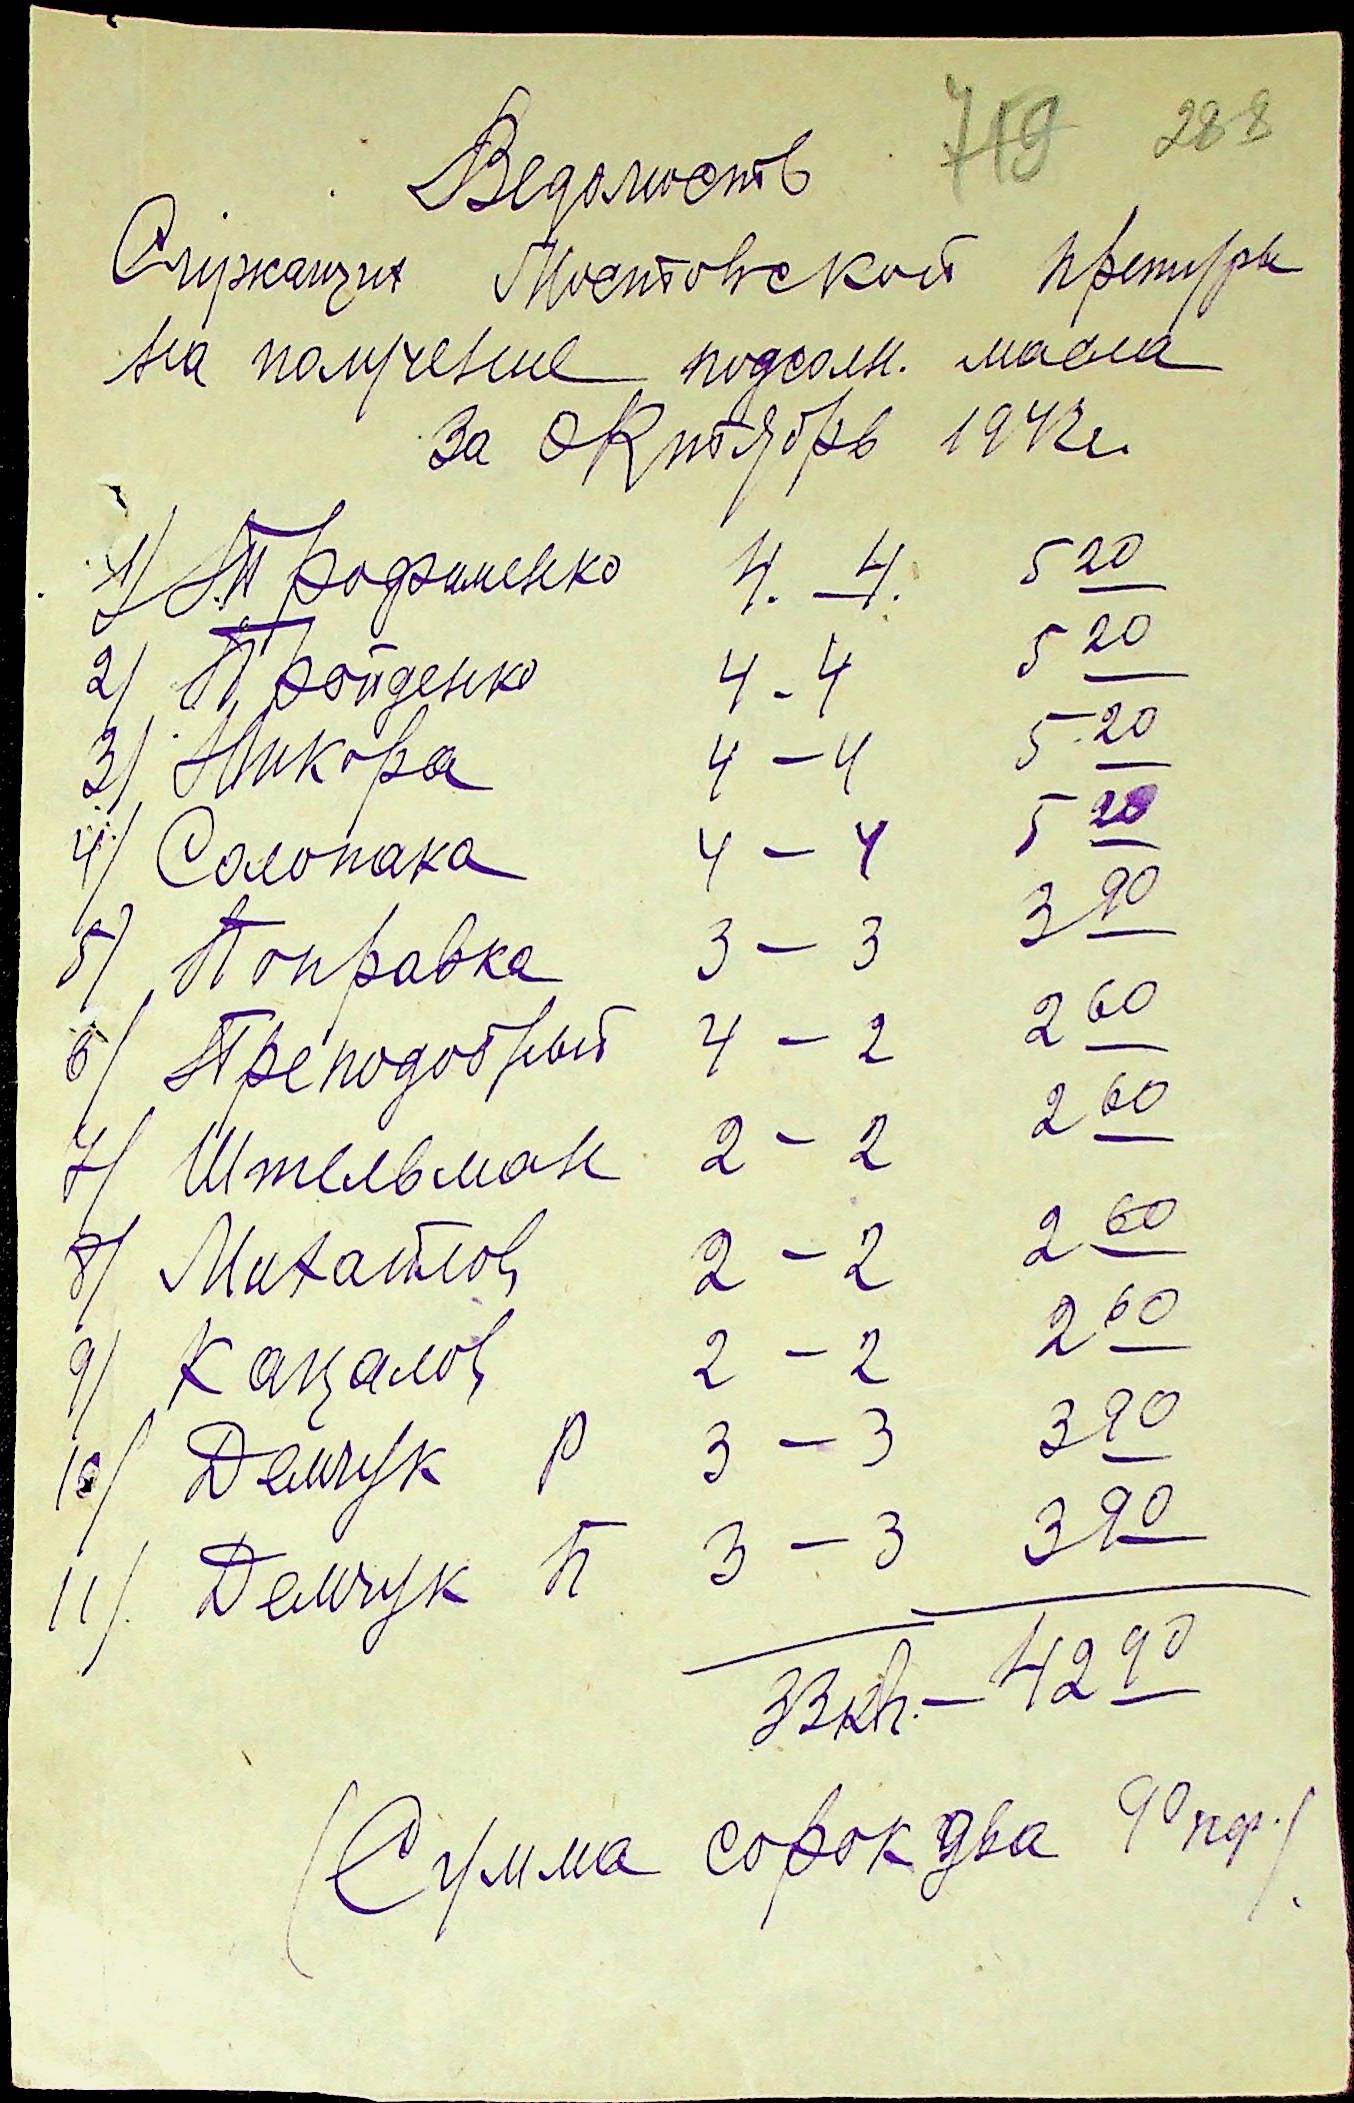 719 288
Ведомость
Служащих Мостовской претуры
на получение подсолн. масла
за октябрь 1942 г.
1) Трофименко 4. - 4. 5 20
2) Пройденко 4 - 4 5 20
3) Никора 4 - 4 5 20
4) Солопака 4 - 4 5 20
5) Поправка 3 - 3 3 90
6) Преподобный 4 - 2 2 60
7) Штельман 2 - 2 2 60
8) Михайлов 2 - 2 2 60
9) Кацалов 2 - 2 2 60
10) Демчук Р 3 - 3 3 90
11) Демчук П 3 - 3 3 90
33 - 42 90
(Сумма сорок два 90 пф.)